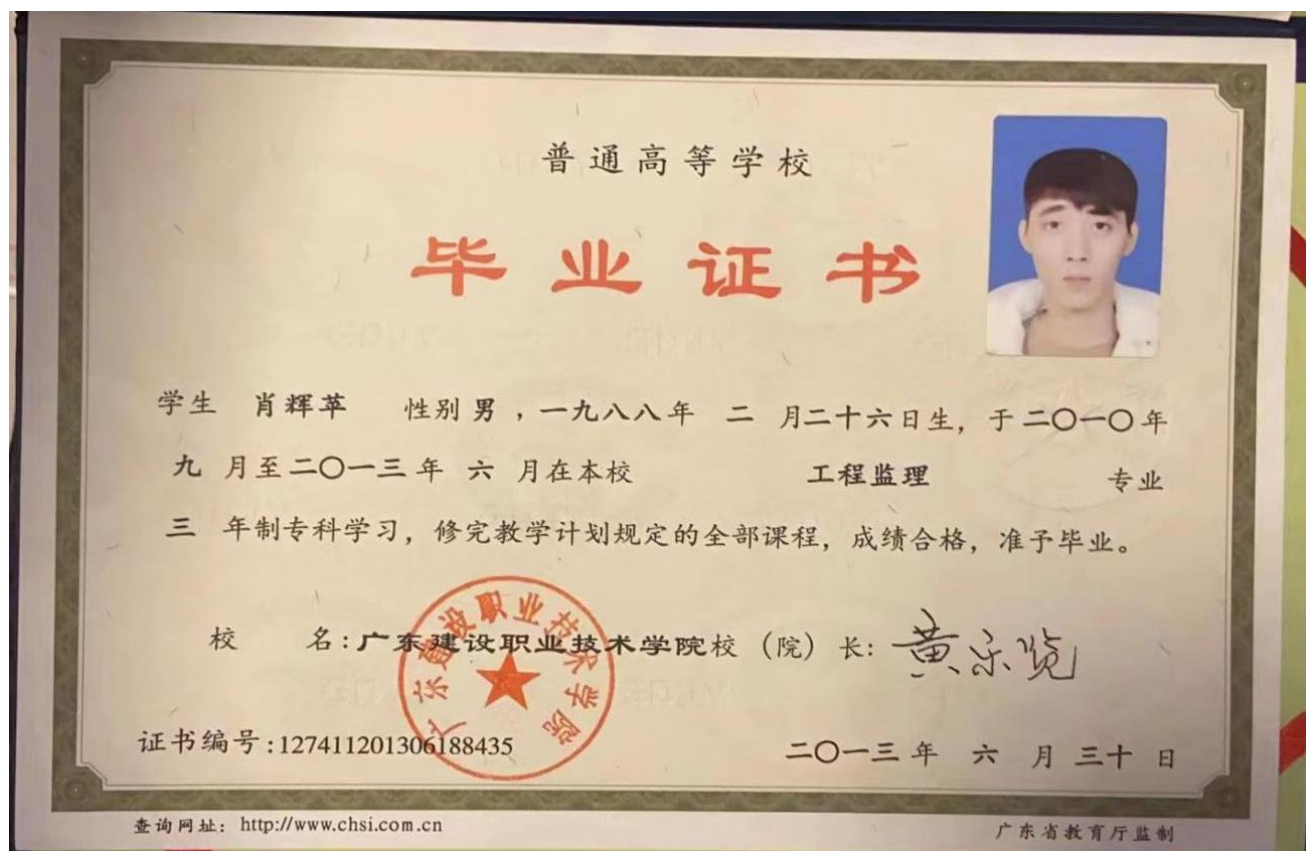 普通高等学校
毕业证书
学生 肖辉苹 性别 男 ，一九八八年 二 月二十六日生，于二〇一〇年
九 月至二〇一三年 六 月在本校 工程监理 专业
三 年制专科学习，修完教学计划规定的全部课程，成绩合格，准予毕业。
校 名：广东建设职业技术学院 校（院）长：
广东建设职业技术学院
证书编号：127411201306188435 二〇一三年 六 月 三十 日
查询网址：http://www.chsi.com.cn 广东省教育厅监制